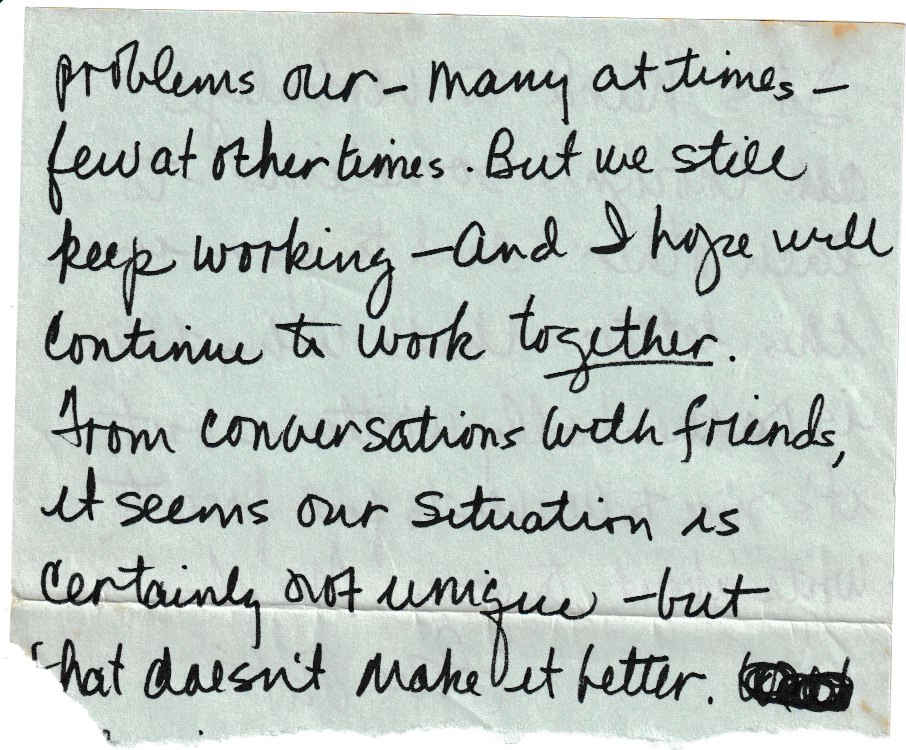 problems our – many at times –
few at other times. But we still
keep working – And I hope will
continue to work together.
From conversations with friends,
it seems our situation is
certainly not unique – but
that doesn't make it better.